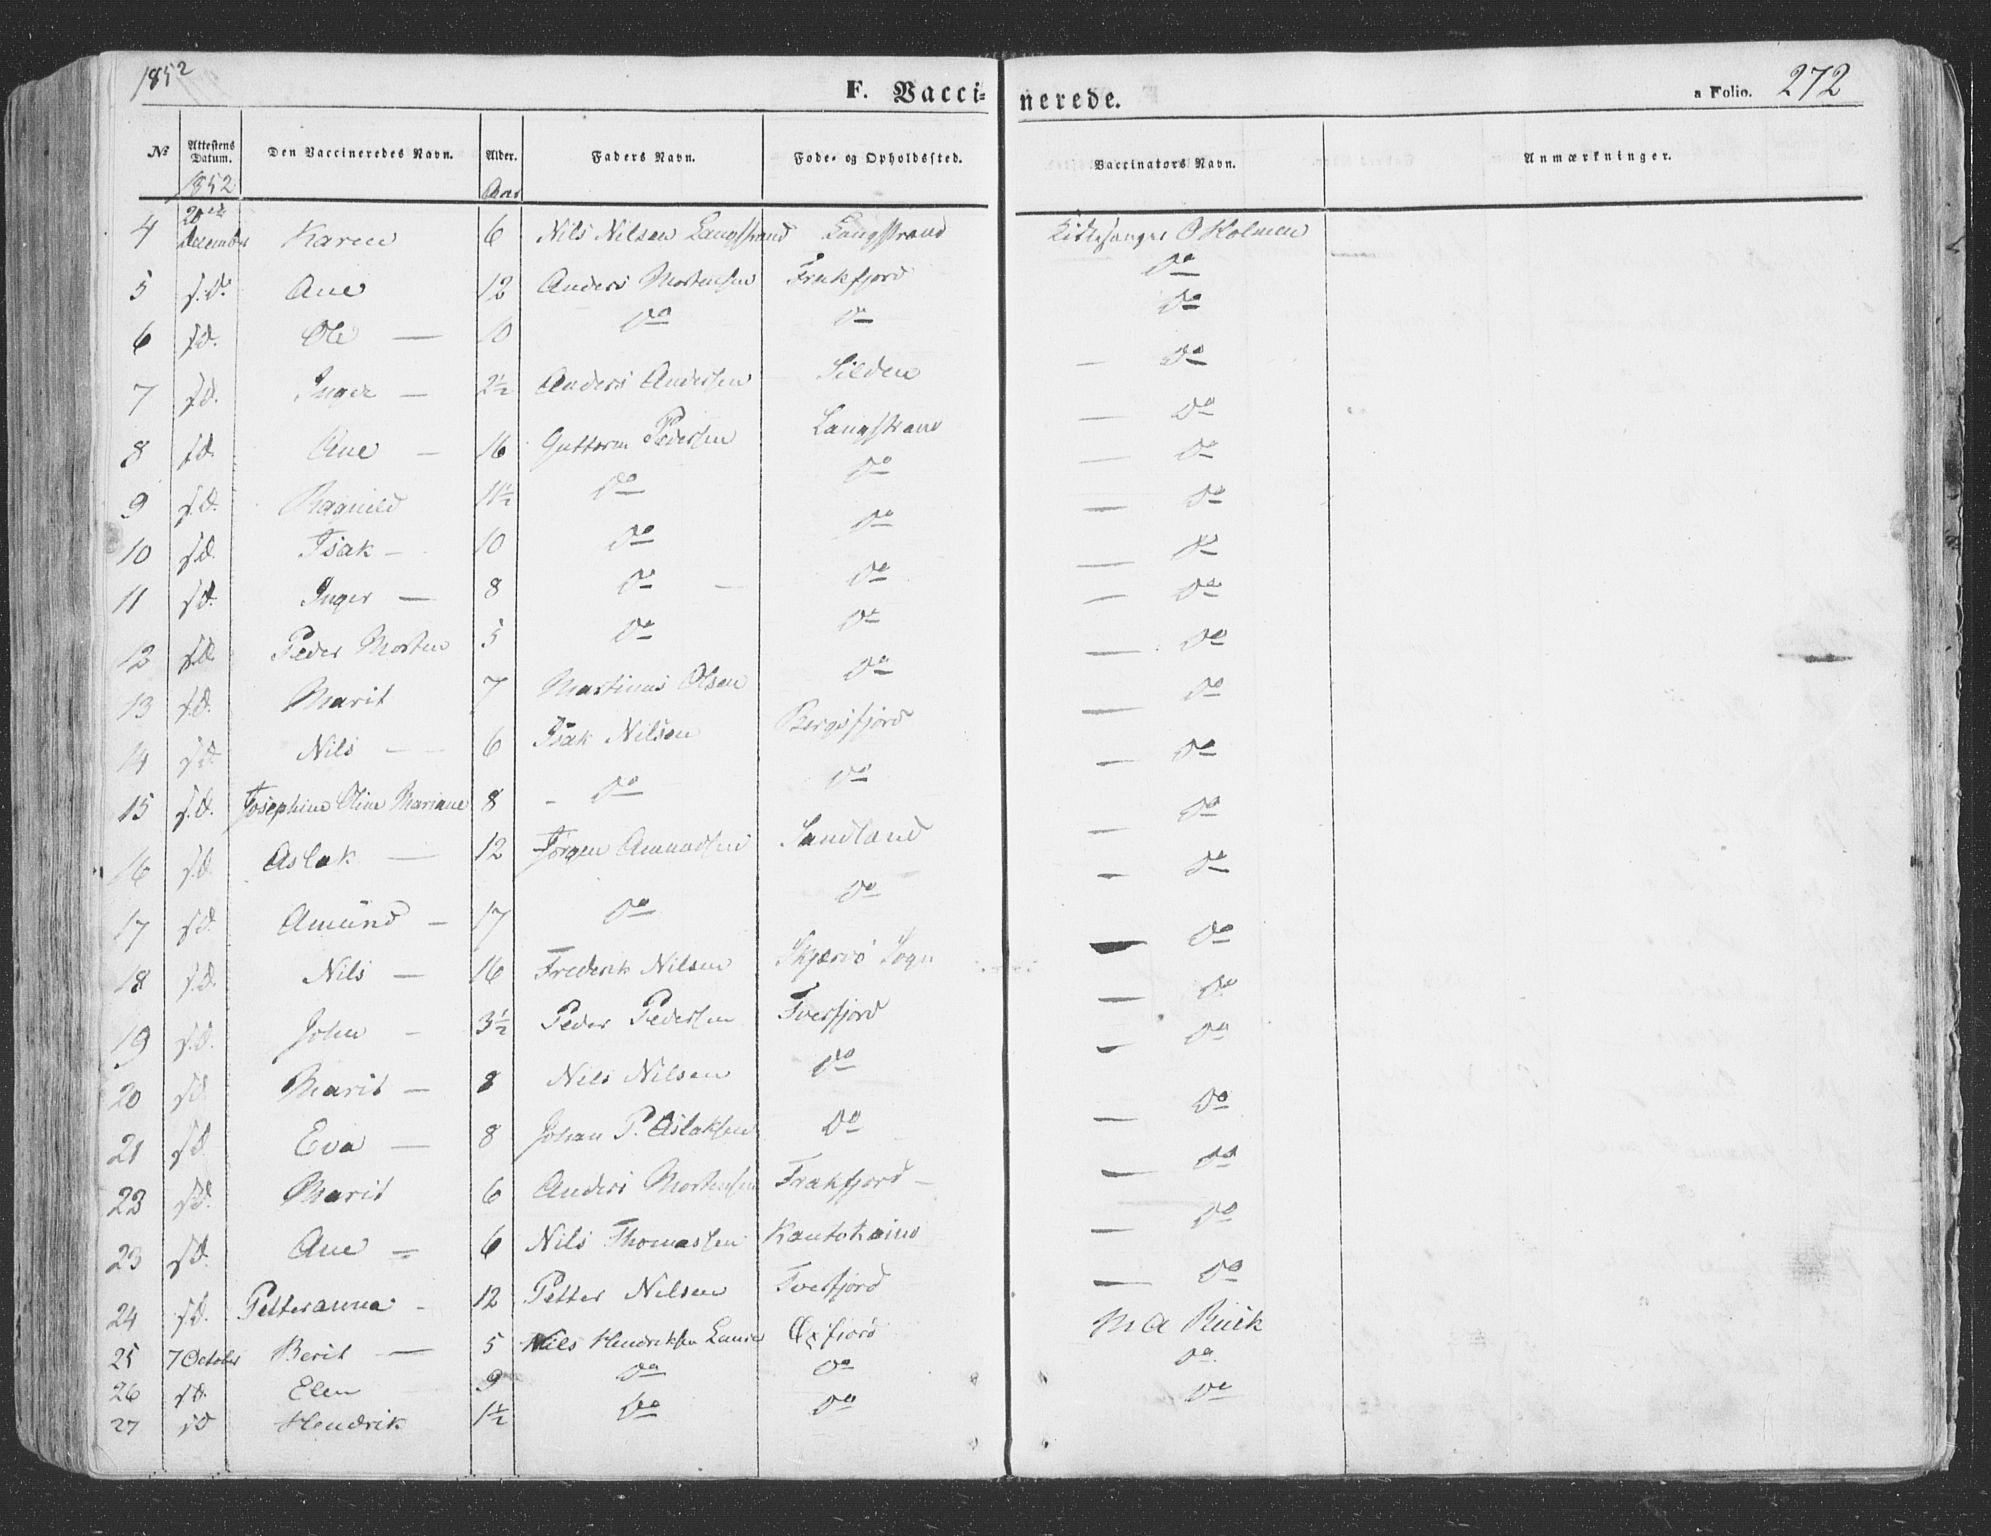 1852
F. Vacci- nerede.
a Folio. 272
No Attestens Datum. Den Vaccineredes Navn. Alder. Faders Navn. Føde- og Opholdssted. Vaccinators Navn. Anmærkninger.
1852 Aar
4 20de December Karen 6 Nils Nilsen Langstrand Langstrand Kirkesanger O Holmen
5 s.D. Ane 12 Anders Mortensen Frakfjord Do
6 s.D. Ole — 10 Do Do Do
7 s.D. Inger — 2½ Anders Andersen Silden — Do
8 s.D. Ane — 16 Guttorm Pedersen Langstrand — Do
9 s.D. Ragnild 11½ Do Do — Do
10 s.D. Isak — 10 Do Do — Do
11 s.D. Inger — 8 Do — Do — Do
12 s.D. Peder Morten 5 Do Do — Do
13 s.D. Marit 7 Martinus Olsen Do — Do
14 s.D. Nils — 6 Isak Nilsen Bergsfjord — Do
15 s.D. Josephine Oline Mariane 8 - Do Do — Do
16 s.D. Aslak — 12 Jørgen Amundsen Sandland — Do
17 s.D. Amünd — 17 Do Do — Do
18 s.D. Nils — 16 Frederik Nilsen Skjervø Sogn — Do
19 s.D. John - 3½ Peder Pedersen Tverfjord — Do
20 s.D. Marit — 8 Nils Nilsen Do — Do
21 s.D. Eva — 8 Johan P. Aslaksen Do — Do
22 s.D. Marit 6 Anders Mortensen Frakfjord — — Do
23 s.D. Ane — 6 Nils Thomassen Kautokaino — Do
24 s.D. Petteranna - 12 Petter Nilsen Tverfjord — Do
25 7 October Berit — 5 Nils Hendriksen Øxfjord M A Buck
26 s.D. Elen 9 Do Do Do
27 s.D Hendrik 1½ Do Do Do